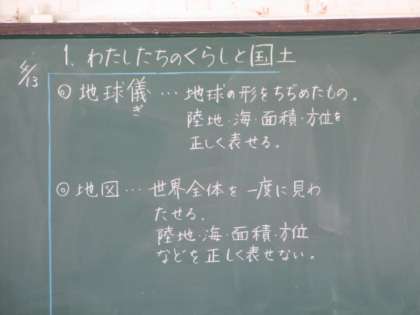 5/13
1. わたしたちのくらしと国土
◎地球儀…地球の形をちぢめたもの。
ぎ
陸地・海・面積・方位を
正しく表せる。
◎地図…世界全体を一度に見わ
たせる.
陸地・海・面積・方位
などを正しく表せない。